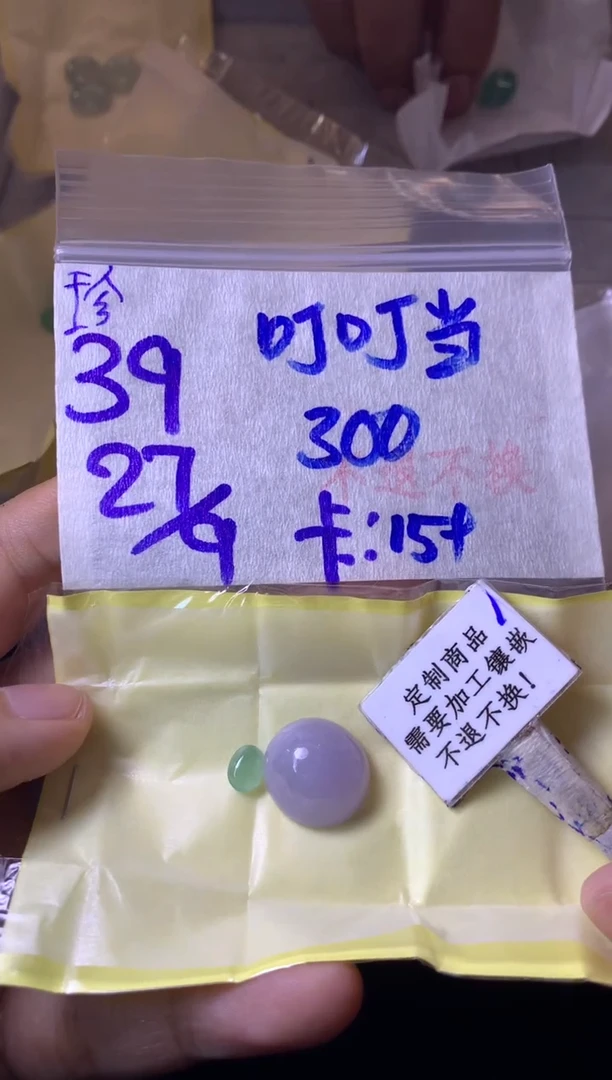 珍
39
27/9
叮叮当
300
不退不换
卡:15+
定制商品
需要加工镶嵌
不退不换!